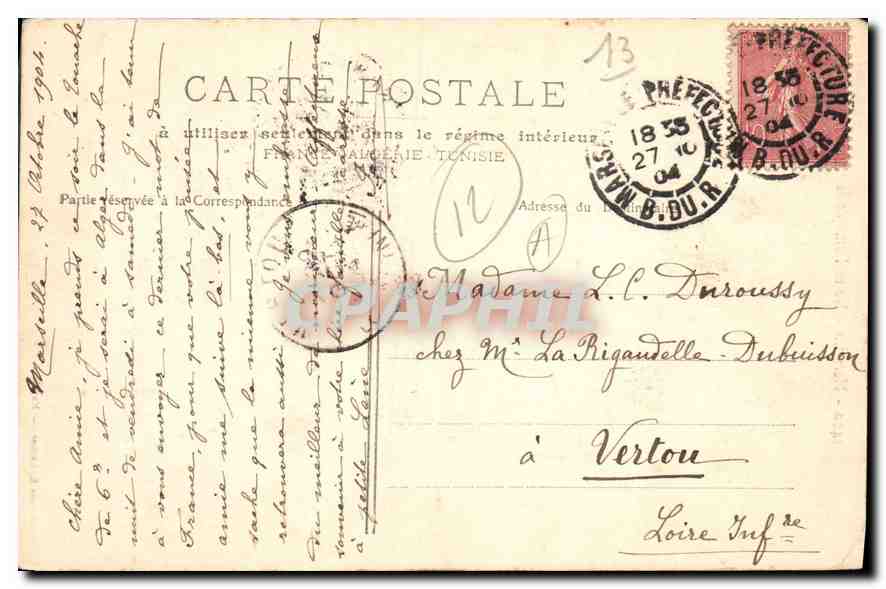 13
CARTE POSTALE
à utiliser seulement dans le régime intérieur
FRANCE - ALGÉRIE - TUNISIE
Partie réservée à la Correspondance
Adresse du Destinataire
12
A
MARSEILLE PRÉFECTURE
18 35
27 10
04
B. DU. R
PRÉFECTURE
18 35
27 10
04
B. DU. R
Madame L. C. Duroussy
chez Mr La Rigaudelle-Dubuisson
à Vertou
Loire Infre
Marseille, 27 Octobre 1904.
Chère Amie, je prends ce soir le Touache
de 6h et je serai à Alger dans la
nuit de vendredi à samedi - J'ai tenu
à vous envoyer ce dernier mot de
France, pour que votre pensée
amie me suive là-bas, et
sache que la mienne vous y
retrouvera aussi
Je vous embrasse
du meilleur de mon cœur
souvenir à votre famille
à petite Lène
CPAPHIL